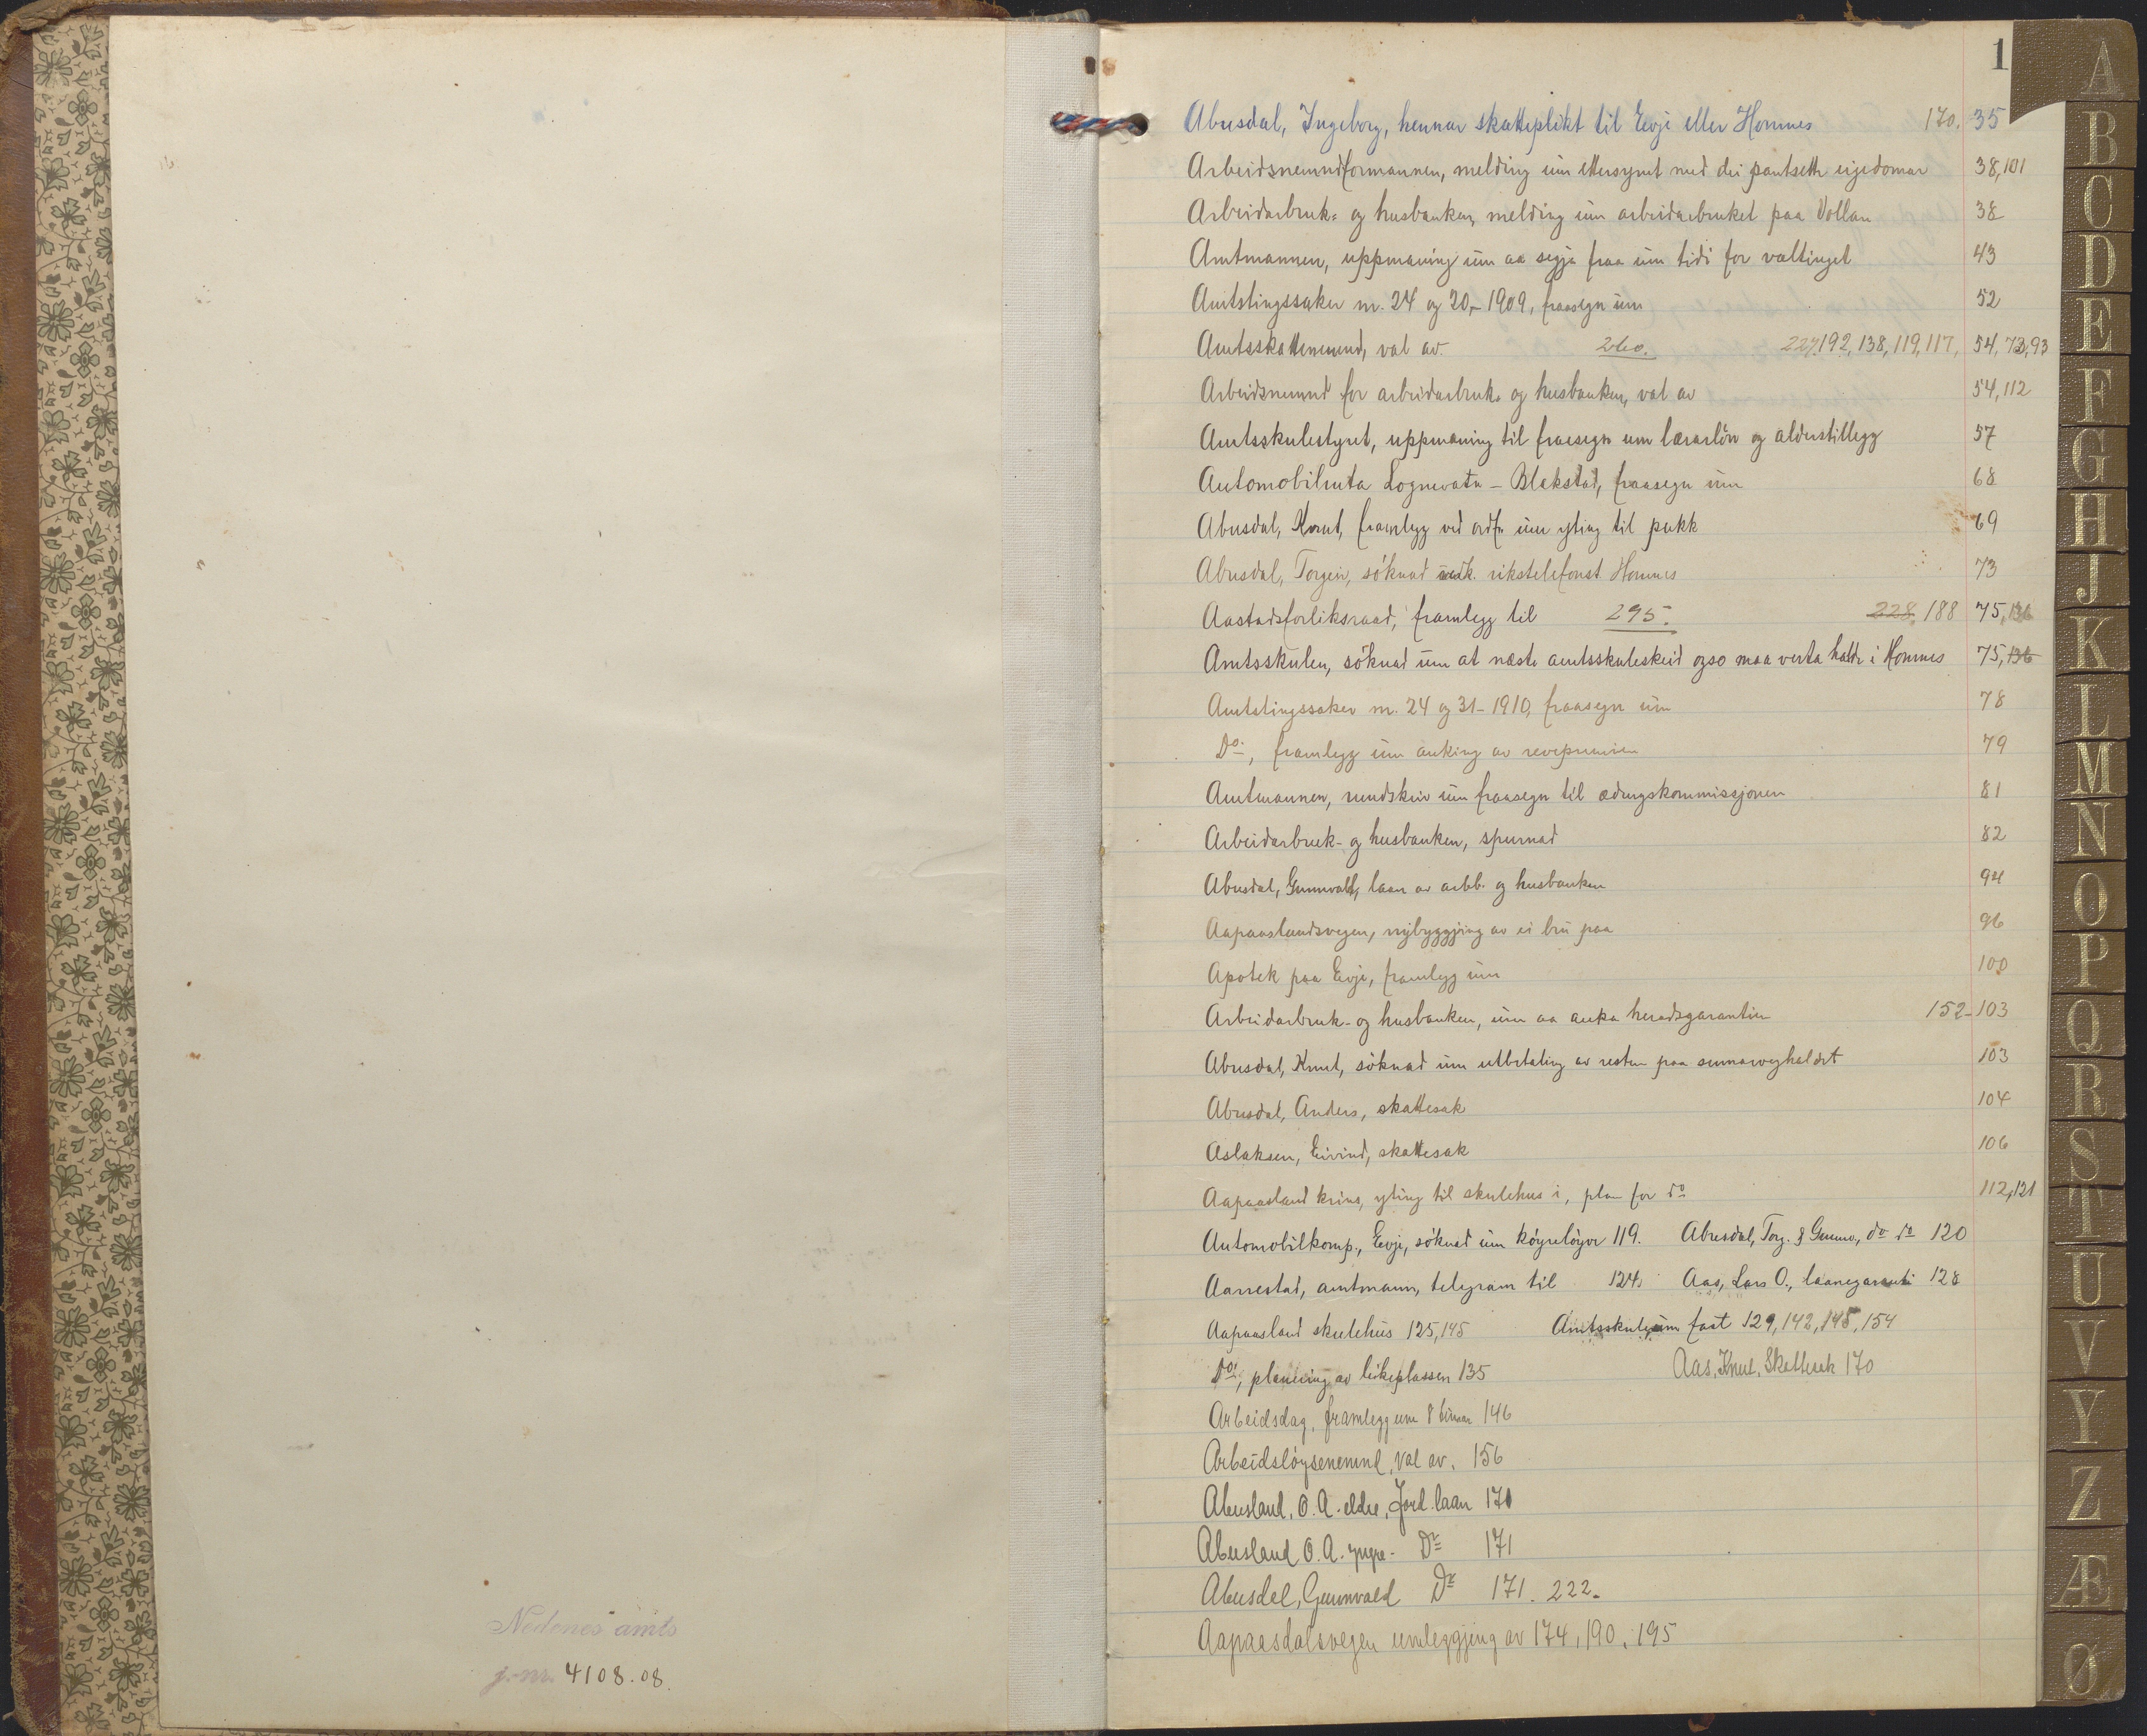 Nedenes amts
j.-nr. 4108.08.
1
Abusdal, Ingeborg, hennar skatteplikt til Evje eller Hornnes 170. 35
Arbeidsnemndformannen, melding um ettersynet med dei pantsette eigedomar 38,101
Arbeidarbruk- og husbanken, melding um arbeidarbruket paa Vollan 38
Amtmannen, uppmaning um aa segja fraa um tidi for valtinget 43
Amtstingssaker nr. 24 og 20,-1909, fraasegn um 52
Amtsskattenemnd, val av. 260. 227,192,138,119,117, 54,73,93
Arbeidsnemnd for arbeidarbruk- og husbanken, val av 54,112
Amtsskulestyret, uppmaning til fraasegn um lærarløn og alderstillegg 57
Automobilruta Lognevatn - Blakstad, fraasegn um 68
Abusdal, Knut, framlegg ved ordf. um yting til pukk 69
Abusdal, Torgeir, söknad vedk. rikstelefonst. Hornnes 73
Aastadsforliksraad, framlegg til 295. 228, 188 75,136
Amtsskulen, söknad um at næste amtsskuleskeid ogso maa verta halde i Hornnes 75,136
Amtstingssaker nr. 24 og 31-1910, fraasegn um 78
Do., framlegg um auking av revepremien 79
Amtmannen, rundskriv um fraasegn til ødungskommissjonen 81
Arbeidarbruk- og husbanken, spurnad 82
Abusdal, Gunnvald, laan av arbb. og husbanken 94
Aapaaslandsvegen, nybyggjing av ei bru paa 96
Apotek paa Evje, framlegg um 100
Arbeidarbruk- og husbanken, um aa auka heradsgarantien 152-103
Abusdal, Knut, söknad um utbetaling av resten paa sumarveghaldet 103
Abusdal, Anders, skattesak 104
Aslaksen, Eivind, skattesak 106
Aapaasland krins, yting til skulehus i, plan for do 112,121
Automobilkomp., Evje, söknad um köyreløyve 119. Abusdal, Torg. & Gunnv., do do 120
Aarrestad, amtmann, telegram til 124. Aas, Lars O., laanegaranti 128
Aapaasland skulehus 125,145 Amtsskule, um fast 129,142,145,154
Do., planering av leikeplassen 135 Aas, Knut, Skattesak 170
Arbeidsdag, framlegg um 8 timar 146
Arbeidsløysenemnd, val av. 156
Abusland, O. A. eldre, Jord.laan 170
Abusland O. A. yngre - Do 171
Abusdal, Gunnvald Do 171. 222.
Aapaasdalsvegen umleggjing av 174, 190, 195
A
B
C
D
E
F
G
H
J
K
L
M
N
O
P
Q
R
S
T
U
V
Y
Z
Æ
Ø